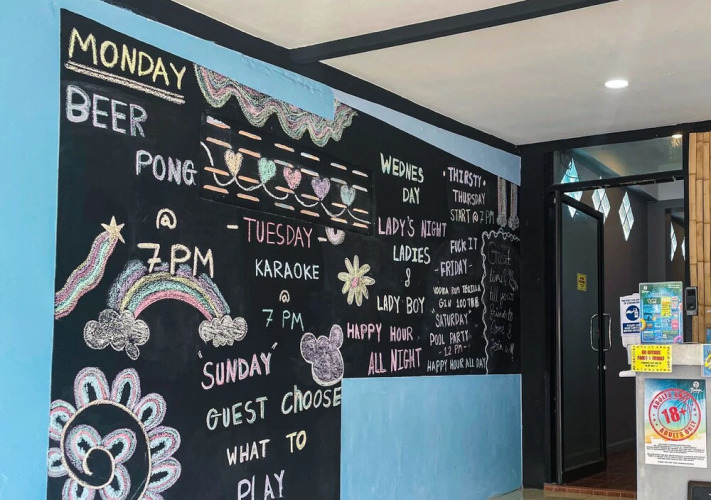 MONDAY
BEER
PONG
@
7PM
-TUESDAY-
KARAOKE
@
7 PM
"SUNDAY"
GUEST CHOOSE
WHAT TO
PLAY
WEDNES
DAY
LADY'S NIGHT
LADIES
&
LADY BOY
HAPPY HOUR
ALL NIGHT
·THIRSTY·
THURSDAY
START @ 7 PM
FUCK IT
-FRIDAY-
VODKA RUM TEKILLA
GIN 100 THB
"SATURDAY"
POOL PARTY
-12 PM-
HAPPY HOUR ALL DAY
Guest
18+
ADULTS ONLY